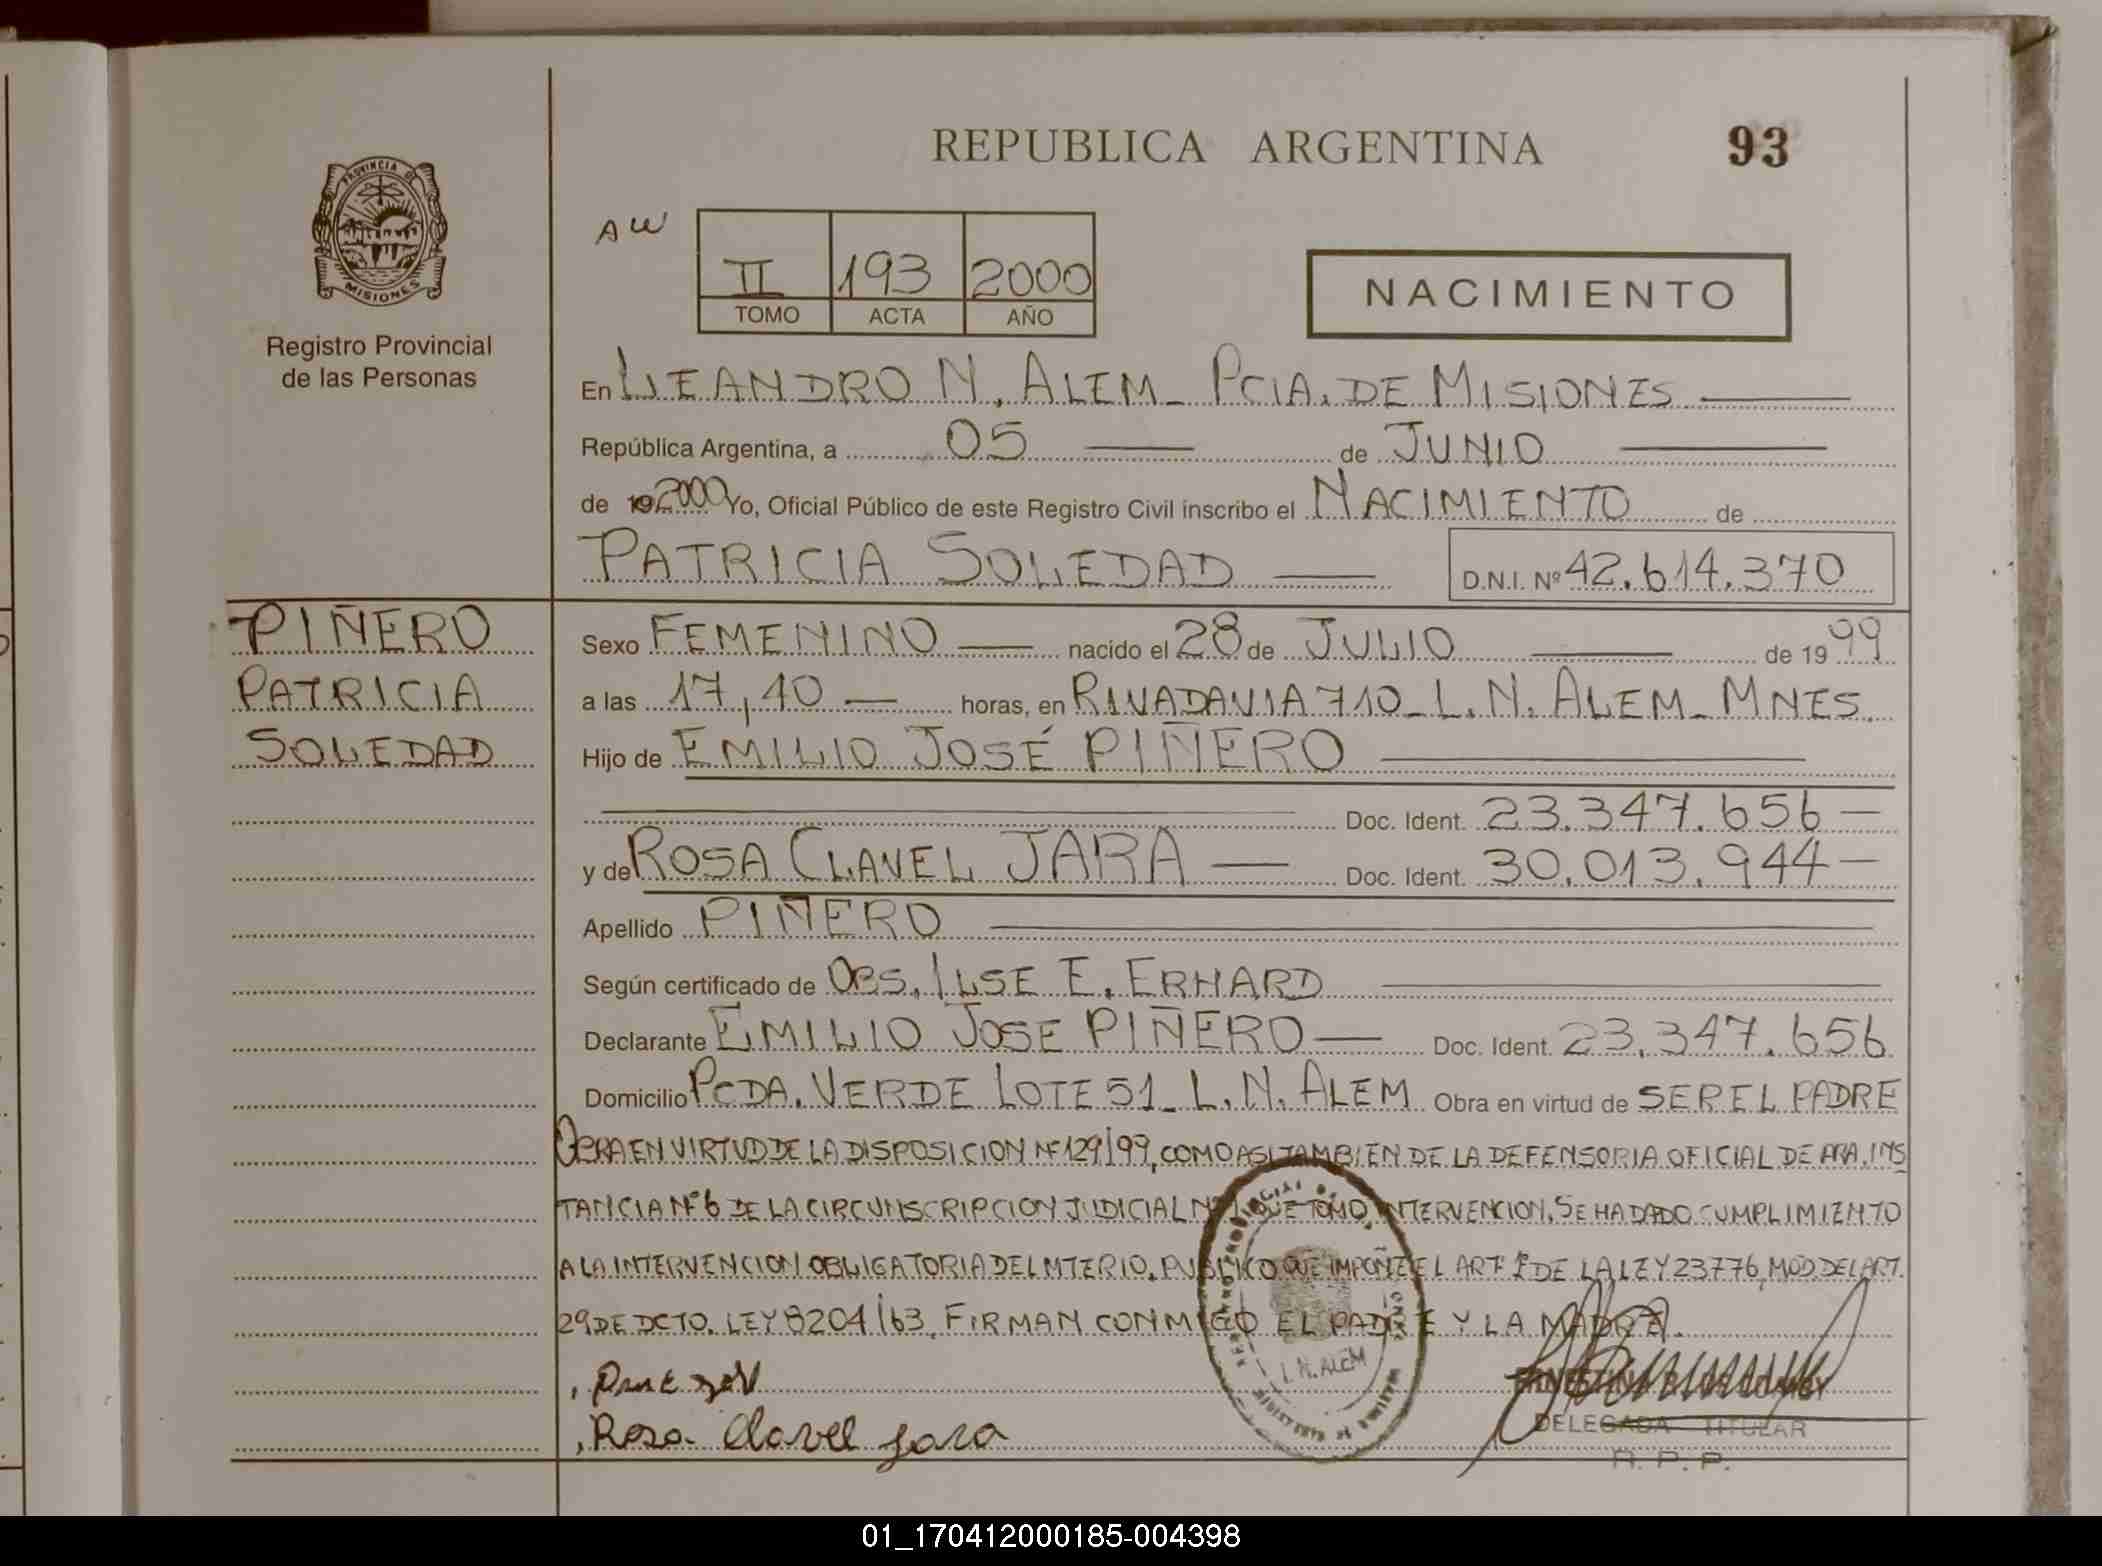 REPUBLICA ARGENTINA
93
PROVINCIA DE
MISIONES
Registro Provincial
de las Personas
AW
II 193 2000
TOMO ACTA AÑO
NACIMIENTO
En LEANDRO N. ALEM - PCIA. DE MISIONES
República Argentina, a 05 de JUNIO
de 192000 Yo, Oficial Público de este Registro Civil inscribo el NACIMIENTO de
PATRICIA SOLEDAD D.N.I. Nº 42.614.370
PIÑERO
PATRICIA
SOLEDAD
Sexo FEMENINO nacido el 28 de JULIO de 1999
a las 17,40 horas, en RIVADAVIA 710 - L. N. ALEM - MNES.
Hijo de EMILIO JOSÉ PIÑERO
Doc. Ident. 23.347.656
y de ROSA CLAVEL JARA Doc. Ident. 30.013.944
Apellido PIÑERO
Según certificado de OBS. ILSE E. ERHARD
Declarante EMILIO JOSE PIÑERO Doc. Ident. 23.347.656
Domicilio PCDA. VERDE LOTE 51 - L. N. ALEM Obra en virtud de SER EL PADRE
OBRA EN VIRTUD DE LA DISPOSICION Nº 129/99, COMO ASI TAMBIEN DE LA DEFENSORIA OFICIAL DE 1RA. INS
TANCIA Nº 6 DE LA CIRCUNSCRIPCION JUDICIAL QUE TOMO INTERVENCION. SE HA DADO CUMPLIMIENTO
A LA INTERVENCION OBLIGATORIA DEL MTERIO. PUBLICO QUE IMPONE EL ART. 1º DE LA LEY 23776, MOD. DEL ART.
29 DE DCTO. LEY 8204/63. FIRMAN CONMIGO EL PADRE Y LA MADRE.
Rosa Clavel Jara
L. N. ALEM
DELEGADA TITULAR
R. P. P.
01_170412000185-004398